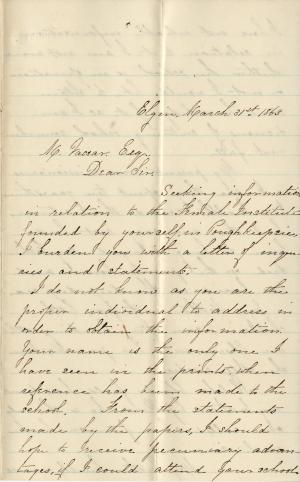 Elgin, March 31st 1863
M. Vassar. Esq.
Dear Sir.
Seeking information
in relation to the Female Institute
founded by yourself, in Poughkeepsie,
I burden you with a letter of inqui-
ries, and statements.
I do not know as you are the
proper individual to address in
order to obtain the information.
Your name is the only one I
have seen in the prints, when
reference has been made to the
school. From the statements
made by the papers, I should
hope to receive pecuniary advan-
tages, if I could attend your school.